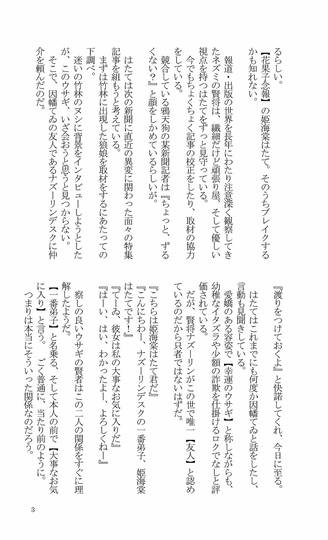 るらしい。
【花果子念報】の姫海棠はたて。そのうちブレイクする
かも知れない。
報道・出版の世界を長年にわたり注意深く観察してき
たネズミの賢将は、繊細だけど頑張り屋、そして優しい
視点を持つはたてをずっと見守っている。
今でもちょくちょく記事の校正をしたり、取材の協力
をしている。
競合している鴉天狗の某新聞記者は『ちょっと、ずる
くない？』と顔をしかめているらしいが。
はたては次の新聞に直近の異変に関わった面々の特集
記事を組もうと考えている。
まずは竹林に出現した狼娘を取材をするにあたっての
下調べ。
迷いの竹林のヌシに背景をインタビューしようとした
が、このウサギ、いざ会おうと思うと見つからない。
そこで、因幡てゐの友人であるナズーリンデスクに仲
介を頼んだのだ。
『渡りをつけておくよ』と快諾してくれ、今日に至る。
はたてはこれまでにも何度か因幡てゐと話をしたし、
言動も見聞きしている。
愛嬌のある容姿で【幸運のウサギ】と称しながらも、
幼稚なイタズラや少額の詐欺を仕掛けるロクでなしと評
価されている。
だが、賢将ナズーリンがこの世で唯一【友人】と認め
ているのだから只者ではないはずだ。
『こちらは姫海棠はたて君だ』
『こんにちわー、ナズーリンデスクの一番弟子、姫海棠
はたてです！』
『てーゐ、彼女は私の大事なお気に入りだ』
『はーい、はい、わかったよー、よろしくねー』
察しの良いウサギの賢者はこの二人の関係をすぐに理
解したようだ。
【一番弟子】と名乗る、そして本人の前で【大事なお気
に入り】と言う。ごく普通に、当たり前のように。
つまりは本当にそういった関係なのだろう。
3